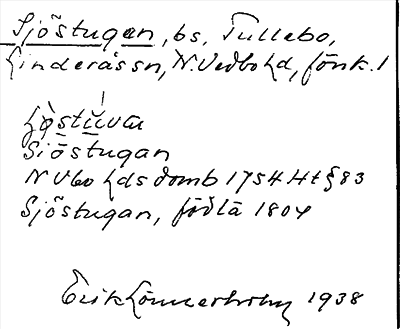 Sjöstugan, bs, Tullebo,
Linderås sn, N. Vedbo hd, Jönk. l
Siöstugan
N Vbo hds domb 1754 Ht § 83
Sjöstugan, födla 1804
Erik Lönnerholm 1938